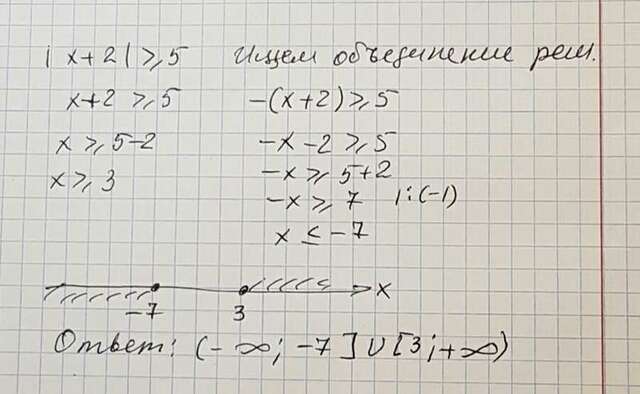 |x+2|⩾5 Ищем объединение реш.
x+2⩾5 -(x+2)⩾5
x⩾5-2 -x-2⩾5
x⩾3 -x⩾5+2
-x⩾7 |:(-1)
x≤-7
-7 3 x
Ответ: (-∞; -7]∪[3;+∞)